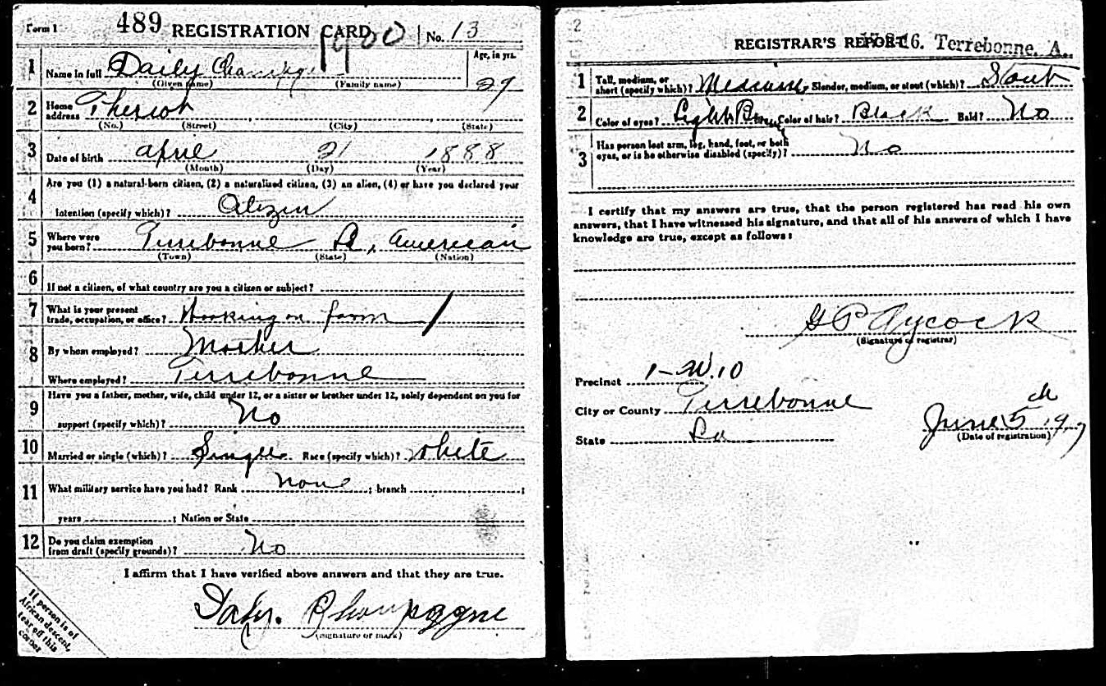 Form 1 489 REGISTRATION CARD No. 13
1900
1 Name in full Daily Age, in yrs.
(Given name) (Family name) 29
2 Home address Theriot
(No.) (Street) (City) (State)
3 Date of birth April 21 1888
(Month) (Day) (Year)
4 Are you (1) a natural-born citizen, (2) a naturalized citizen, (3) an alien, (4) or have you declared your
intention (specify which)? Citizen
5 Where were you born? Terrebonne La, American
(Town) (State) (Nation)
6 If not a citizen, of what country are you a citizen or subject?
7 What is your present trade, occupation, or office? Working on farm
8 By whom employed? Mother
Where employed? Terrebonne
9 Have you a father, mother, wife, child under 12, or a sister or brother under 12, solely dependent on you for
support (specify which)? No
10 Married or single (which)? Single Race (specify which)? White
11 What military service have you had? Rank none ; branch ;
years ; Nation or State
12 Do you claim exemption from draft (specify grounds)? No
I affirm that I have verified above answers and that they are true.
(Signature or mark)
If person is of
African descent,
tear off this
corner
2
REGISTRAR'S REPORT Terrebonne, A.
1 Tall, medium, or short (specify which)? Medium Slender, medium, or stout (which)? Stout
2 Color of eyes? Light Brown Color of hair? Black Bald? No
3 Has person lost arm, leg, hand, foot, or both eyes, or is he otherwise disabled (specify)? No
I certify that my answers are true, that the person registered has read his own
answers, that I have witnessed his signature, and that all of his answers of which I have
knowledge are true, except as follows:
G P Aycock
(Signature of registrar)
Precinct 1-W.10
City or County Terrebonne
State La
June 5th 1917
(Date of registration)